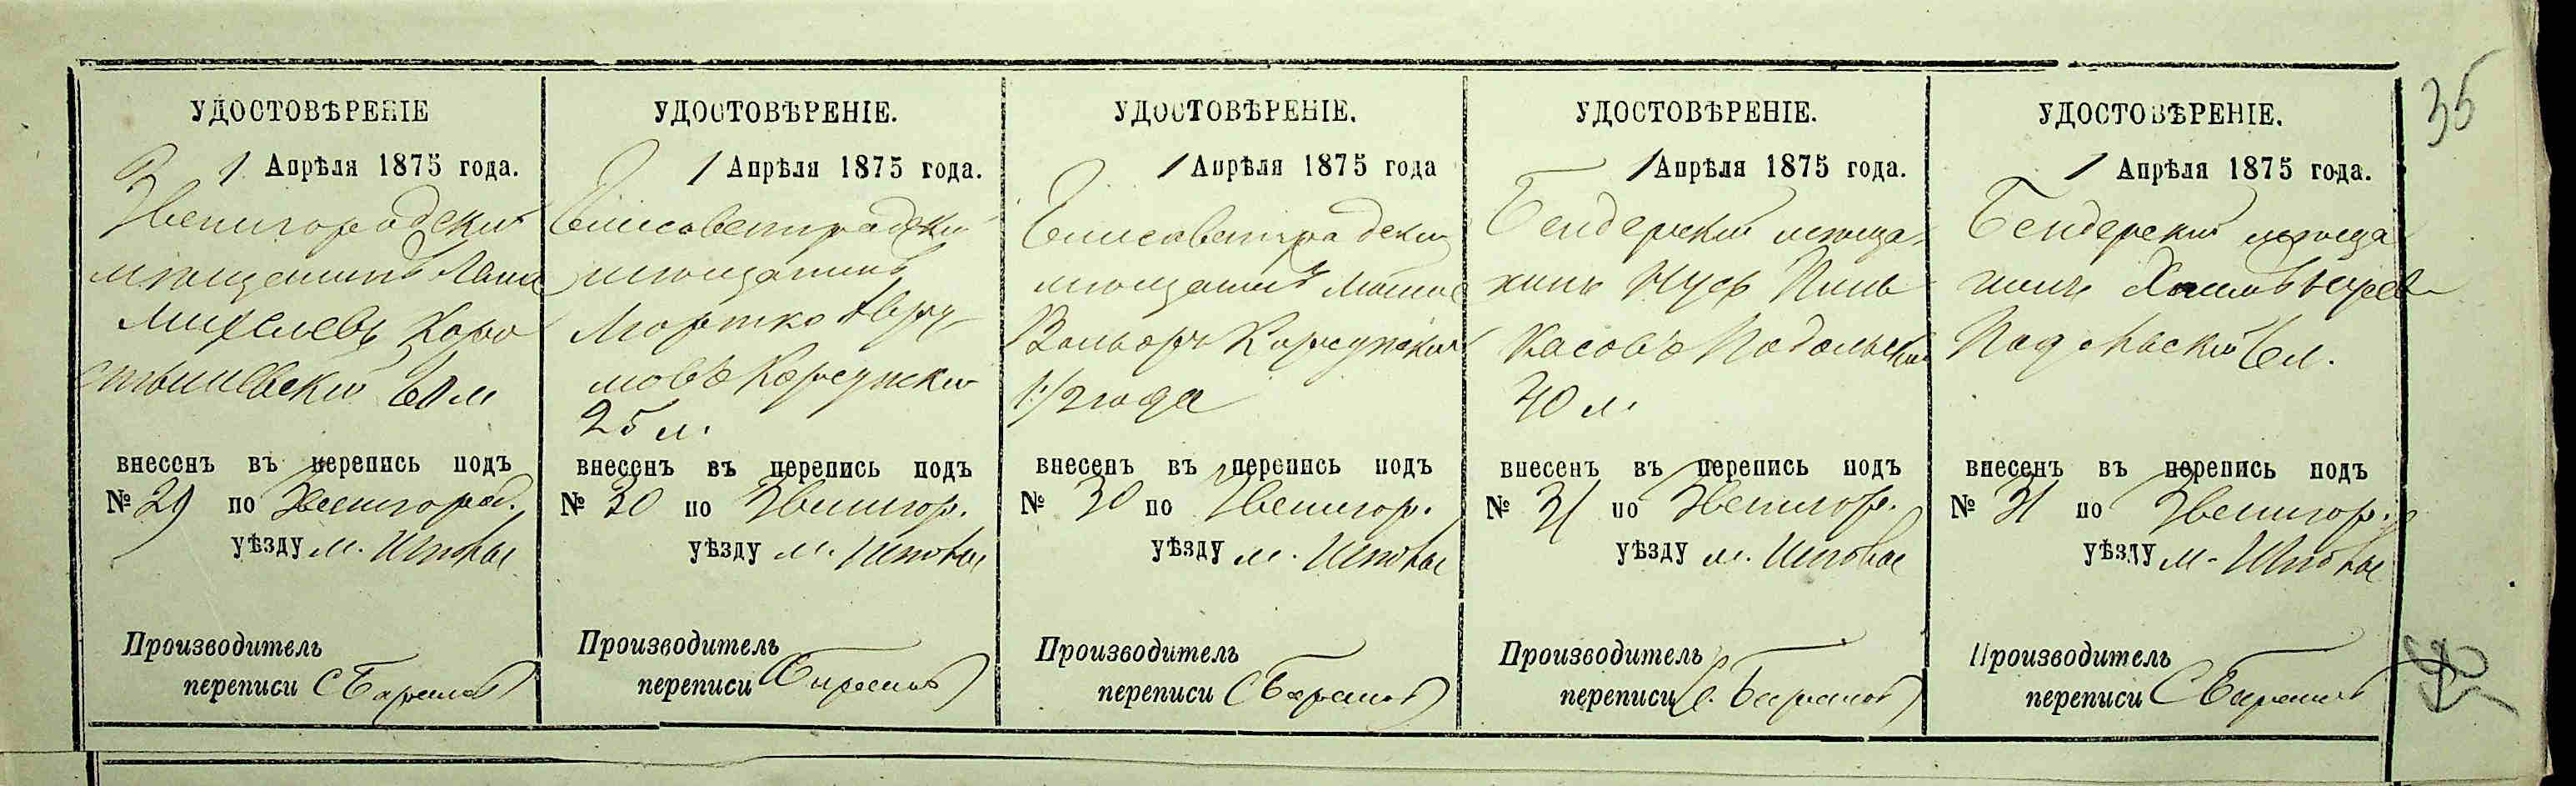 35
УДОСТОВѢРЕНІЕ
1 Апрѣля 1875 года.
Звенигородскій
мѣщанинъ
Михелевъ Коро
стышевскій 60 л
внесенъ въ перепись подъ
№ 29 по Звенигород.
уѣзду м. Шпола
Производитель
переписи С Баранов
УДОСТОВѢРЕНІЕ.
1 Апрѣля 1875 года.
Елисаветградскій
мѣщанинъ
Мортко Авру
мовъ Корсунскій
25 л.
внесенъ въ перепись подъ
№ 30 по Звенигор.
уѣзду м. Шпола
Производитель
переписи С Баранов
УДОСТОВѢРЕНІЕ.
1 Апрѣля 1875 года
Елисаветградскій
мѣщанинъ Мошко
Вольфъ Корсунскій
1 1/2 года
внесенъ въ перепись подъ
№ 30 по Звенигор.
уѣзду м. Шпола
Производитель
переписи С Баранов
УДОСТОВѢРЕНІЕ.
1 Апрѣля 1875 года.
Бендерскій мѣща
нинъ Нусъ Пинь
касовъ Подольскій
30 л.
внесенъ въ перепись подъ
№ 31 по Звенигор.
уѣзду м. Шпола
Производитель
переписи С. Баранов
УДОСТОВѢРЕНІЕ.
1 Апрѣля 1875 года.
Бендерскій мѣща
нинъ
Подольскій 6 л.
внесенъ въ перепись подъ
№ 31 по Звенигор.
уѣзду м. Шпола
Производитель
переписи С Баранов